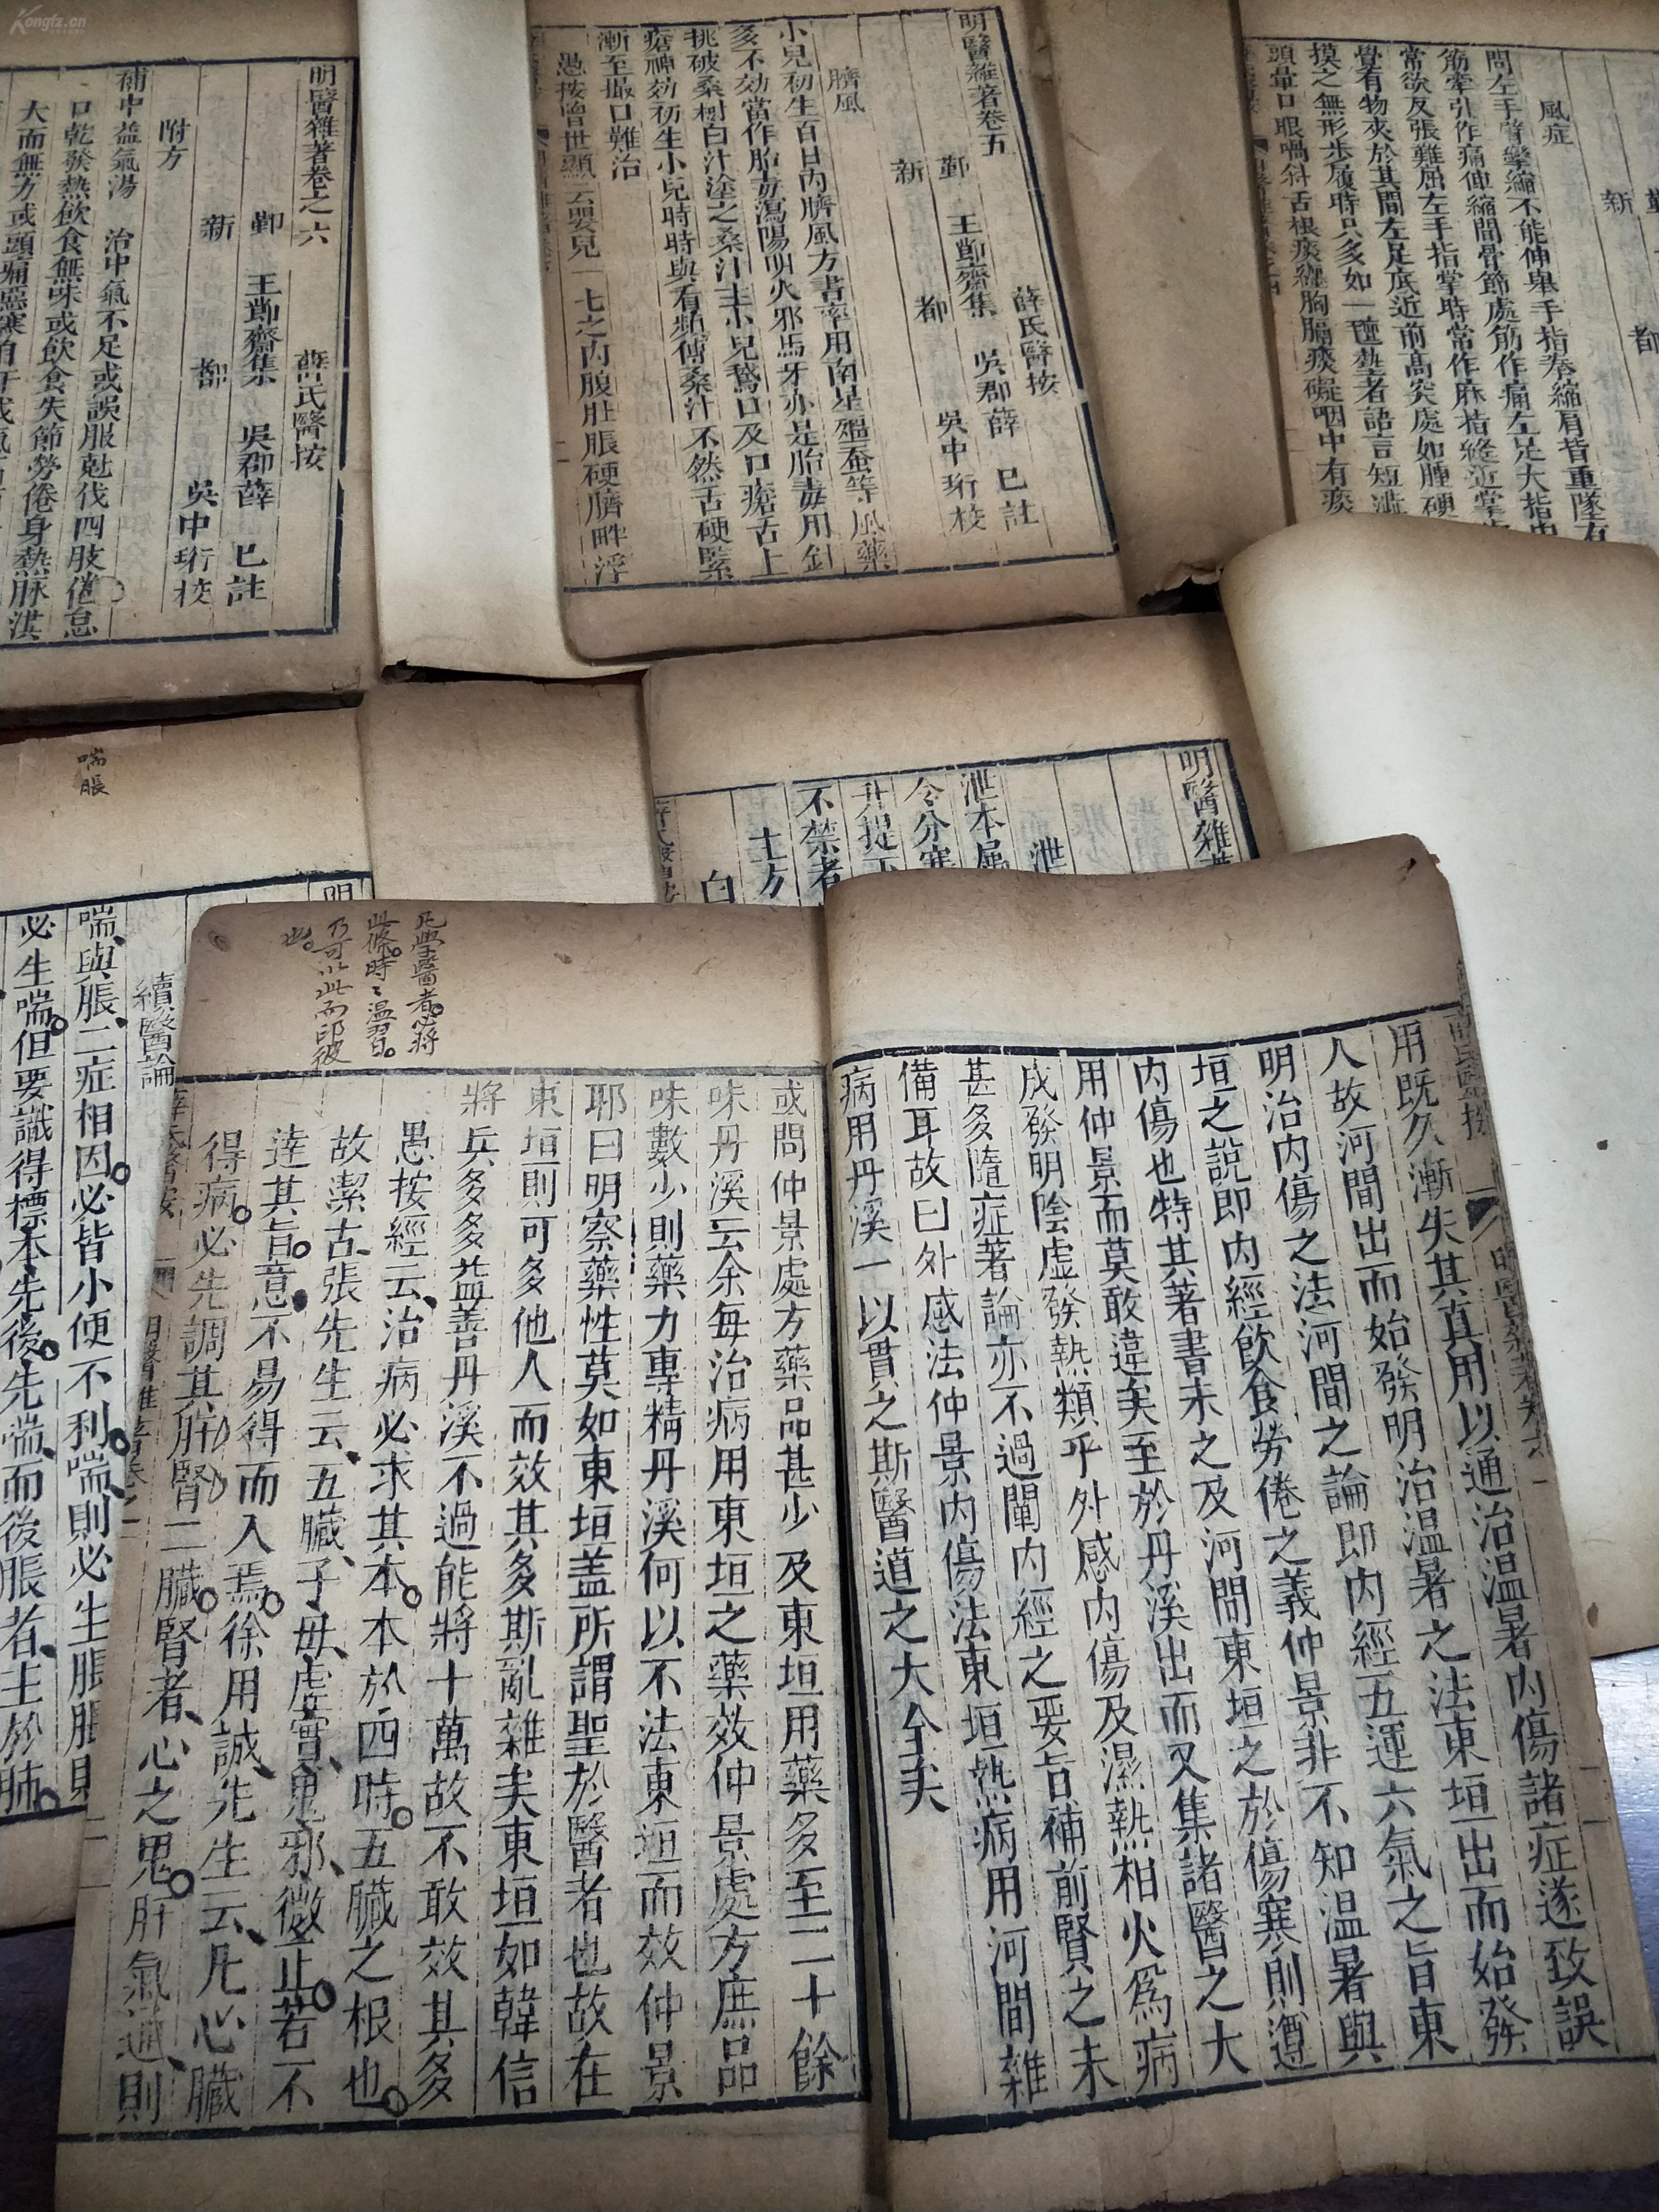 Kongfz.cn
用既久漸失其真用以通治温暑內傷諸症遂致誤
人故河間出而始發明治温暑之法東垣出而始發
明治內傷之法河間之論即內經五運六氣之旨東
垣之說即內經飲食勞倦之義仲景非不知温暑與
內傷也特其著書未之及河間東垣之於傷寒則遵
用仲景而莫敢違矣至於丹溪出而又集諸醫之大
成發明陰虛發熱類乎外感內傷及濕熱相火為病
甚多隨症著論亦不過闡內經之要旨補前賢之未
備耳故曰外感法仲景內傷法東垣熱病用河間雜
病用丹溪一以貫之斯醫道之大全矣
或問仲景處方藥品甚少及東垣用藥多至二十餘
味丹溪云余每治病用東垣之藥效仲景處方庶品
味數少則藥力專精丹溪何以不法東垣而效仲景
耶曰明察藥性莫如東垣盖所謂聖於醫者也故在
東垣則可多他人而效其多斯亂雜矣東垣如韓信
將兵多多益善丹溪不過能將十萬故不敢效其多
愚按經云治病必求其本本於四時五臟之根也
故潔古張先生云五臟子母虛實鬼邪微正若不
達其旨意不易得而入焉徐用誠先生云凡心臟
得病必先調其肝腎二臟腎者心之鬼肝氣通則
凡學醫者必將
此條時〻温習
乃可以此而印彼
也
明醫雜著卷五
薛氏醫按
鄞 王節齋集 吳郡薛 已註
新 都 吳中珩校
臍風
小兒初生百日內臍風方書率用南星殭蚕等風藥
多不効當作胎毒瀉陽明火邪馬牙亦是胎毒用針
挑破桑樹白汁塗之桑汁主小兒鵝口及口瘡舌上
瘡神効初生小兒時時與看頻傅桑汁不然舌硬緊
漸至撮口難治
愚按曾世顯云嬰兒一七之內腹肚脹硬臍畔浮
明醫雜著卷之六
薛氏醫按
鄞 王節齋集 吳郡薛 已註
新 都 吳中珩校
附方
補中益氣湯 治中氣不足或誤服尅伐四肢倦怠
口乾發熱飲食無味或飲食失節勞倦身熱脉洪
大而無方或頭痛惡寒自汗
新 都
風症
問左手臂攣縮不能伸舉手指拳縮肩背重墜有
筋牽引作痛伸縮間骨節處筋作痛左足大指中
常欲反張難屈左手指掌時常作麻指縫近掌
覺有物夾於其間左足底近前高突處如腫硬
摸之無形步履時只多如一
頭暈口眼喎斜舌根痰纏胸膈痰礙咽中有痰
明醫雜
泄
泄本屬
令分寒
升提下
不禁者
土方
白
喘脹
續醫論
喘與脹二症相因必皆小便不利喘則必生脹脹則
必生喘但要識得標本先後先喘而後脹者主於肺